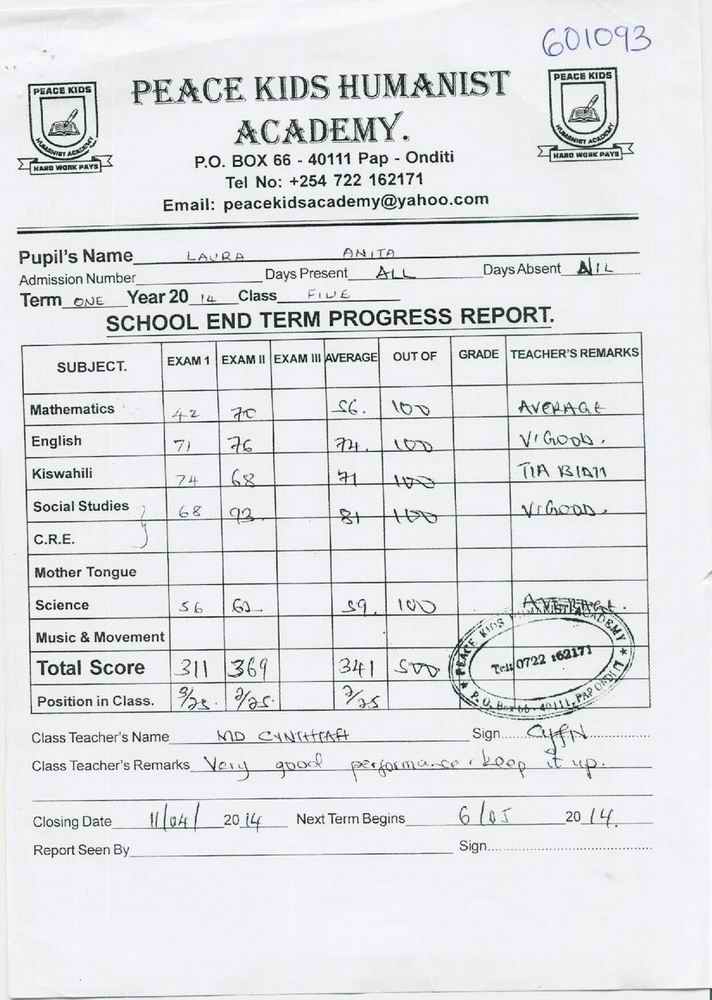 601093
PEACE KIDS
HUMANIST ACADEMY
HARD WORK PAYS
PEACE KIDS HUMANIST
ACADEMY.
PEACE KIDS
HUMANIST ACADEMY
HARD WORK PAYS
P.O. BOX 66 - 40111 Pap - Onditi
Tel No: +254 722 162171
Email: peacekidsacademy@yahoo.com
Pupil's Name LAURA ANITA
Admission Number Days Present ALL Days Absent NIL
Term ONE Year 20 14 Class FIVE
SCHOOL END TERM PROGRESS REPORT.
SUBJECT. EXAM 1 EXAM II EXAM III AVERAGE OUT OF GRADE TEACHER'S REMARKS
Mathematics 42 70 56. 100 AVERAGE
English 71 76 74. 100 V. GOOD.
Kiswahili 74 68 71 100 TIA
Social Studies 68 93 81 100 V. GOOD.
C.R.E.
Mother Tongue
Science 56 62 59. 100 AVERAGE.
Music & Movement
Total Score 311 369 341 500
Position in Class. 9/25. 2/25. 2/25
PEACE KIDS HUMANIST ACADEMY
Tel: 0722 162171
P.O. Box 66 - 40111, PAP ONDITI
Class Teacher's Name MD Sign
Class Teacher's Remarks Very good performance. keep it up.
Closing Date 11/04/ 2014 Next Term Begins 6/05 2014.
Report Seen By Sign